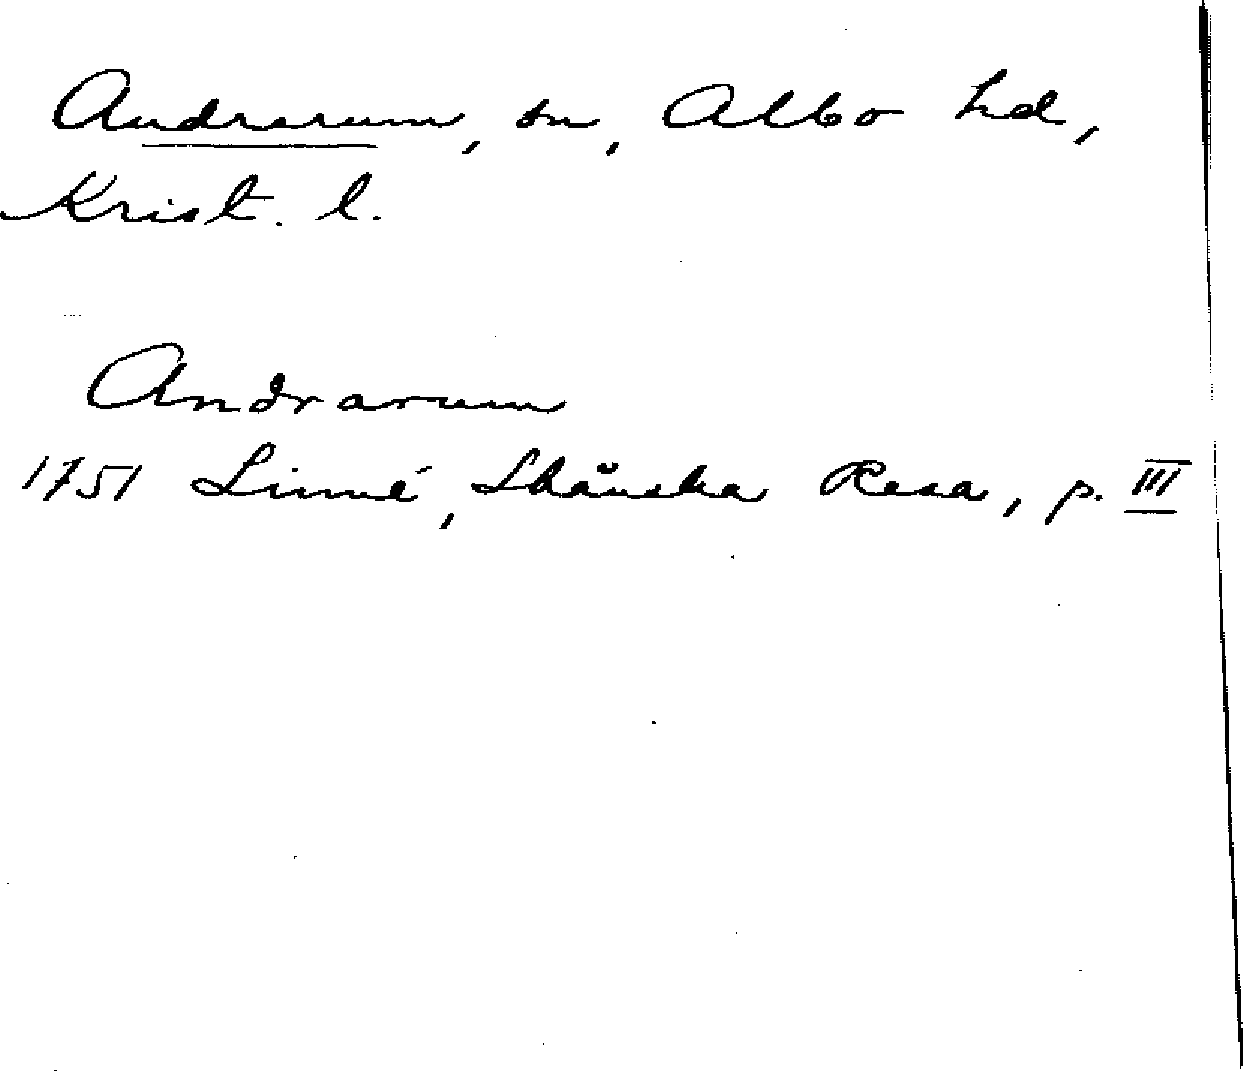 Andrarum, sn, Albo hd,
Krist. l.
Andrarum
1751 Linné, Skånska Resa, p. III